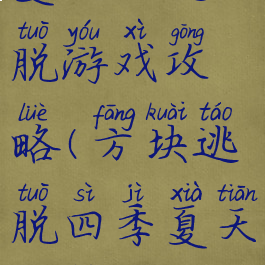 tuō yóu xì gōng
脱游戏攻
lüè fāng kuài táo
略(方块逃
tuō sì jì xià tiān
脱四季夏天